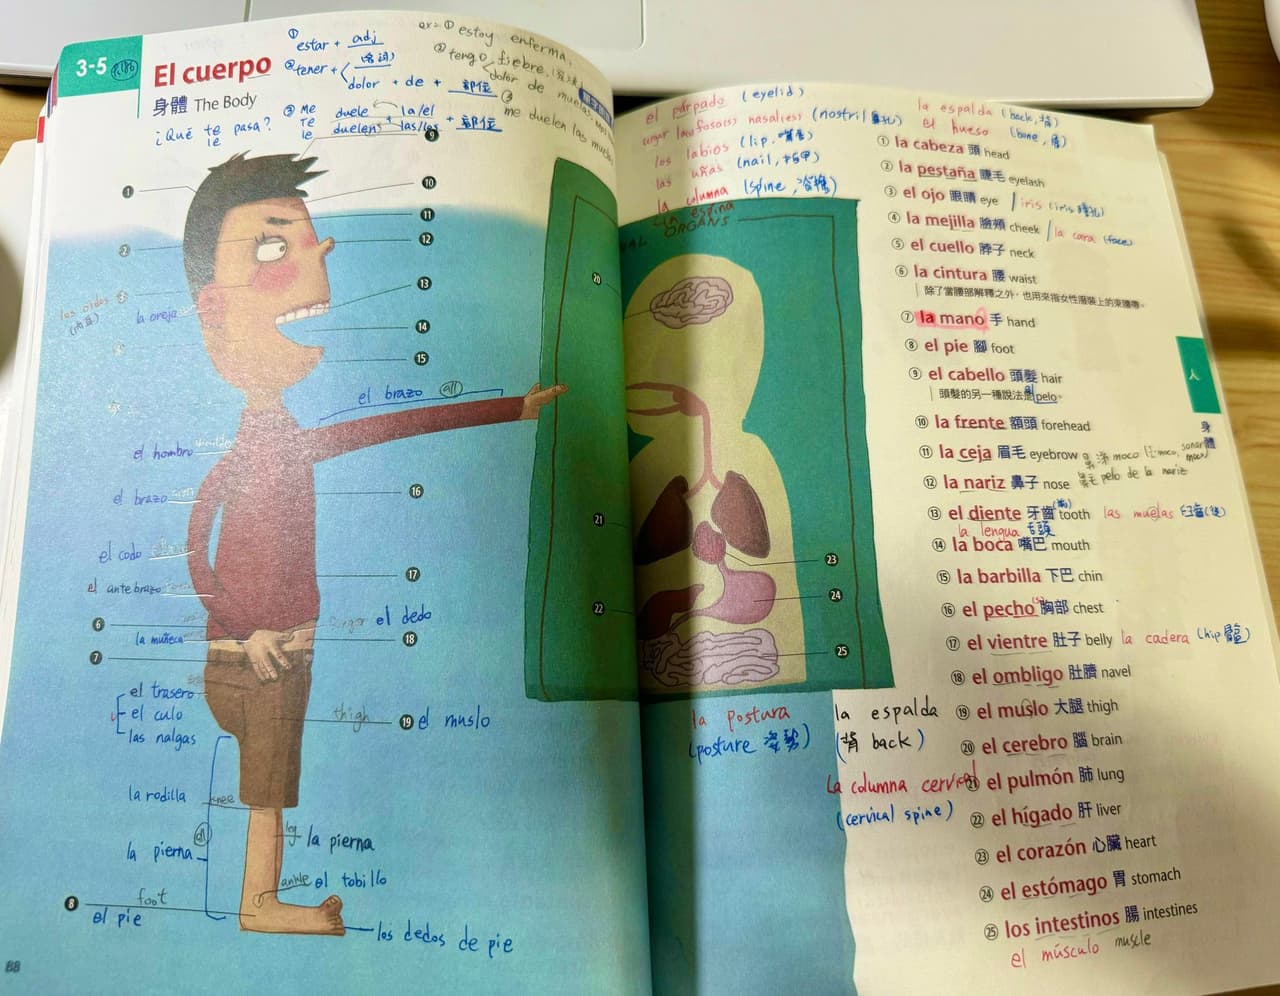 3-5
El cuerpo
身體 The Body
¿Qué te pasa?
le
① estar + adj
② tener +
dolor + de + 部位
③ Me duele la/el
Te + + 部位
le duelen las/los
ex= ① estoy enferma,
② tengo fiebre,
dolor de muelas,
③ me duelen las
1
2
3
6
7
8
9
10
11
12
13
14
15
16
17
18
19
los oídos
la oreja
el brazo all
el hombro
el brazo
el codo
el antebrazo
el dedo
la muñeca
el trasero
el culo
las nalgas
thigh
el muslo
la rodilla knee
leg la pierna
la pierna
ankle el tobillo
foot
el pie
los dedos de pie
88
el párpado (eyelid)
nasales (nostril 鼻孔)
los labios (lip, 嘴唇)
las uñas (nail, 指甲)
la columna (spine, 脊椎)
la espina
la espalda (back, 背)
el hueso (bone, 骨)
ORGANS
20
21
22
23
24
25
① la cabeza 頭 head
② la pestaña 睫毛 eyelash
③ el ojo 眼睛 eye / iris
④ la mejilla 臉頰 cheek / la cara (face)
⑤ el cuello 脖子 neck
⑥ la cintura 腰 waist
除了當腰部解釋之外，也用來指女性服裝上的束腰帶。
⑦ la mano 手 hand
⑧ el pie 腳 foot
⑨ el cabello 頭髮 hair
頭髮的另一種說法是el pelo。
⑩ la frente 額頭 forehead
⑪ la ceja 眉毛 eyebrow 鼻涕 moco
⑫ la nariz 鼻子 nose 鼻毛 pelo de la nariz
⑬ el diente 牙齒 tooth las muelas 臼齒
la lengua 舌頭
⑭ la boca 嘴巴 mouth
⑮ la barbilla 下巴 chin
⑯ el pecho 胸部 chest
⑰ el vientre 肚子 belly la cadera (hip 髖)
⑱ el ombligo 肚臍 navel
⑲ el muslo 大腿 thigh
⑳ el cerebro 腦 brain
㉑ el pulmón 肺 lung
㉒ el hígado 肝 liver
㉓ el corazón 心臟 heart
㉔ el estómago 胃 stomach
㉕ los intestinos 腸 intestines
el músculo muscle
人
身體
la postura
(posture 姿勢)
la espalda
(背 back)
La columna cervical
(cervical spine)